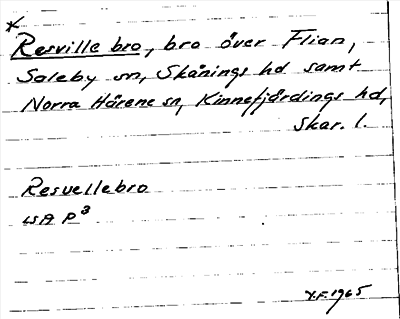 *
Resville bro, bro över Flian,
Saleby sn, Skånings hd samt
Norra Härene sn, Kinnefjärdings hd,
Skar. l.
Resvellebro
LSA P3
Y.F. 1965